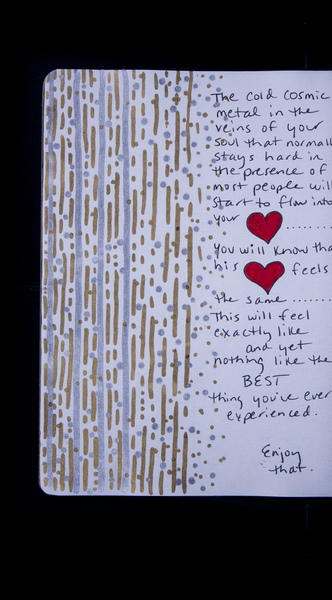 The cold cosmic
metal in the
veins of your
soul that normall
stays hard in
the presence of
most people will
start to flow into
your ........
you will know tha
his feels
the same ......
This will feel
exactly like
and yet
nothing like the
BEST
thing you've ever
experienced.
Enjoy
that.